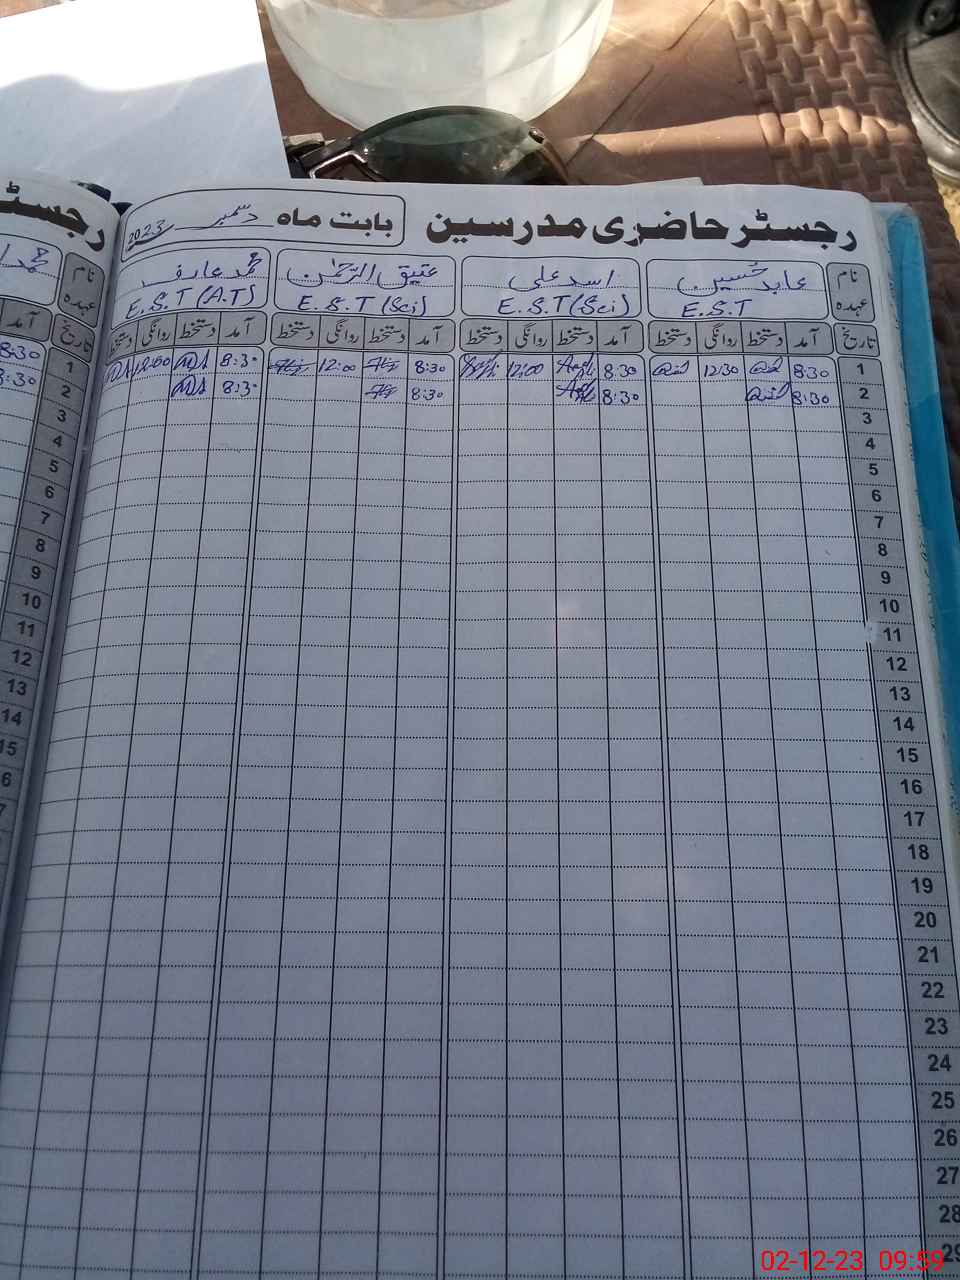 رجسٹر حاضری مدرسین بابت ماہ دسمبر 2023
نام عابد حسین اسد علی عتیق الرحمٰن محمد عارف
عہدہ E.S.T E.S.T (Sci) E.S.T (Sci) E.S.T (A.T)
تاریخ آمد دستخط روانگی دستخط آمد دستخط روانگی دستخط آمد دستخط روانگی دستخط آمد دستخط روانگی دستخط
1 8:30 12:30 8:30 12:00 8:30 12:00 8:30 12:00
2 8:30 8:30 8:30 8:30
3
4
5
6
7
8
9
10
11
12
13
14
15
16
17
18
19
20
21
22
23
24
25
26
27
28
29
رجسٹر
نام محمد
عہدہ
تاریخ آمد
1 8:30
2 8:30
3
4
5
6
7
8
9
10
11
12
13
14
15
02-12-23 09:59